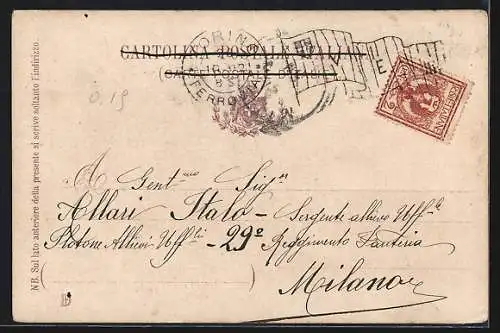 CARTOLINA POSTALE ITALIANA
(CARTE POSTALE D'ITALIE)
TORINO
FERROVIA
E
DUE
0,15
A Gent.mo Sig.n
Allari Italo - Sergente allievo Uff.le
Plotone Allievi Uff.li - 29º Reggimento Fanteria
Milano
NB. Sul lato anteriore della presente si scrive soltanto l'indirizzo